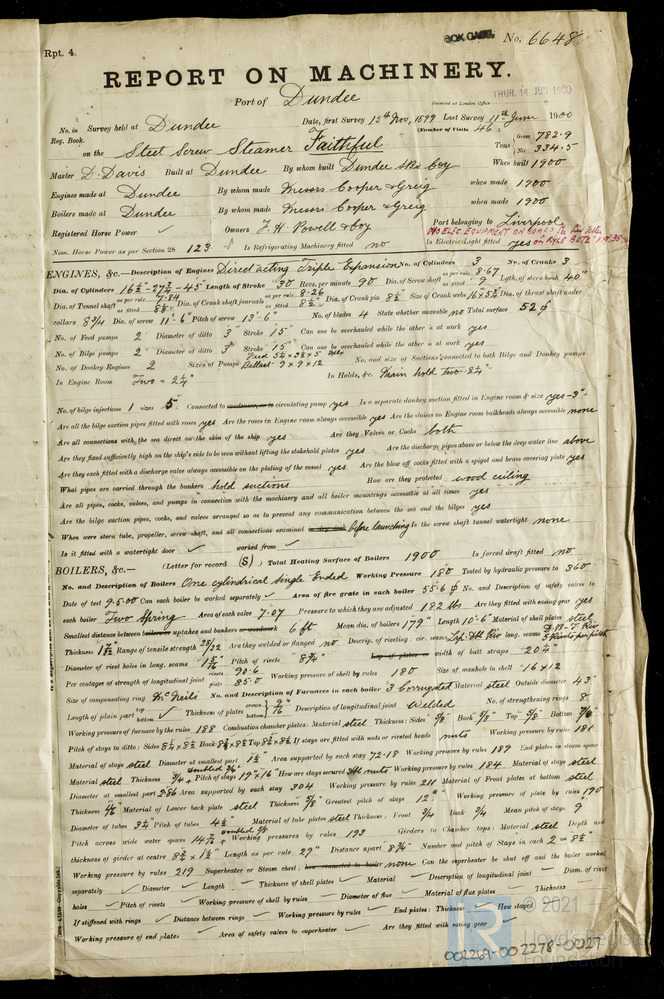 Rpt. 4.
BOX CASE. No. 6648
REPORT ON MACHINERY.
Port of Dundee
Received at London Office THUR. 14 JUN 1900
No. in Survey held at Dundee Date, first Survey 15th Nov, 1899 Last Survey 11th June 1900
Reg. Book. (Number of Visits 46)
on the Steel Screw Steamer Faithful Tons Gross 782.9 Net 334.5
Master D. Davis Built at Dundee By whom built Dundee SB Co When built 1900
Engines made at Dundee By whom made Messrs Cooper & Greig when made 1900
Boilers made at Dundee By whom made Messrs Cooper & Greig when made 1900
Registered Horse Power ✓ Owners F. H. Powell & Coy Port belonging to Liverpool
NO ELEC. EQUIPMENT ON BOARD
Nom. Horse Power as per Section 28 123 Is Refrigerating Machinery fitted no Is Electric Light fitted yes
ENGINES, &c.—Description of Engines Direct acting Triple Expansion No. of Cylinders 3 No. of Cranks 3
Dia. of Cylinders 16½"-27½"-45" Length of Stroke 30 Revs. per minute 90 Dia. of Screw shaft as per rule 8.67 as fitted 9" Lgth. of stern bush 40"
Dia. of Tunnel shaft as per rule 7.84 as fitted Dia. of Crank shaft journals as per rule 8.26 as fitted 8½" Dia. of Crank pin 8½ Size of Crank webs Dia. of thrust shaft under
collars 8¾ Dia. of screw 11'-6" Pitch of screw 13'-6" No. of blades 4 State whether moveable no Total surface 52
No. of Feed pumps 2 Diameter of ditto 3" Stroke 15" Can one be overhauled while the other is at work yes
No. of Bilge pumps 2 Diameter of ditto 3" Stroke 15" Can one be overhauled while the other is at work yes
No. of Donkey Engines 2 Sizes of Pumps Ballast 9 x 9 x 12 No. and size of Suctions connected to both Bilge and Donkey pumps
In Engine Room Two = 2¼" In Holds, &c. Main hold two
No. of bilge injections 1 sizes 5" Connected to circulating pump yes Is a separate donkey suction fitted in Engine room & size yes-3"
Are all the bilge suction pipes fitted with roses yes Are the roses in Engine room always accessible yes Are the sluices on Engine room bulkheads always accessible none
Are all connections with the sea direct on the skin of the ship yes Are they Valves or Cocks both
Are they fixed sufficiently high on the ship's side to be seen without lifting the stokehold plates yes Are the discharge pipes above or below the deep water line above
Are they each fitted with a discharge valve always accessible on the plating of the vessel yes Are the blow off cocks fitted with a spigot and brass covering plate yes
What pipes are carried through the bunkers hold suctions How are they protected wood ceiling
Are all pipes, cocks, valves, and pumps in connection with the machinery and all boiler mountings accessible at all times yes
Are the bilge suction pipes, cocks, and valves arranged so as to prevent any communication between the sea and the bilges yes
When were stern tube, propeller, screw shaft, and all connections examined before launching Is the screw shaft tunnel watertight none
Is it fitted with a watertight door ✓ worked from ✓
BOILERS, &c.— (Letter for record (S)) Total Heating Surface of Boilers 1900 Is forced draft fitted no
No. and Description of Boilers One cylindrical Single Ended Working Pressure 180 Tested by hydraulic pressure to 360
Date of test 9.5.00 Can each boiler be worked separately ✓ Area of fire grate in each boiler 55.6 No. and Description of safety valves to
each boiler Two Spring Area of each valve 7.07 Pressure to which they are adjusted 182 lbs Are they fitted with easing gear yes
Smallest distance between uptakes and bunkers 6 ft Mean dia. of boilers 179" Length 10'-6" Material of shell plates steel
Thickness Range of tensile strength 28/32 Are they welded or flanged no Descrip. of riveting: cir. seams Lap. Dbl Riv long. seams
Diameter of rivet holes in long. seams Pitch of rivets 8¾" width of butt straps 20¾"
Per centages of strength of longitudinal joint rivets 90.6 plate 85.0 Working pressure of shell by rules 180 Size of manhole in shell 16 x 12
Size of compensating ring No. and Description of Furnaces in each boiler 3 Corrugated Material steel Outside diameter 43"
Length of plain part top bottom Thickness of plates crown bottom 9/16" Description of longitudinal joint welded No. of strengthening rings 8
Working pressure of furnace by the rules 188 Combustion chamber plates: Material steel Thickness: Sides 5/8" Back 5/8" Top 5/8" Bottom
Pitch of stays to ditto: Sides Back Top If stays are fitted with nuts or riveted heads nuts Working pressure by rules 181
Material of stays steel Diameter at smallest part 1½ Area supported by each stay 72.18 Working pressure by rules 189 End plates in steam space
Material steel Thickness Pitch of stays 19" x 16" How are stays secured Dbl nuts Working pressure by rules 184 Material of stays steel
Diameter at smallest part 2.86 Area supported by each stay 304 Working pressure by rules 211 Material of Front plates at bottom steel
Thickness Material of Lower back plate steel Thickness 5/8" Greatest pitch of stays 12" Working pressure of plate by rules 190
Diameter of tubes 3¼" Pitch of tubes 4½" Material of tube plates steel Thickness: Front ¾" Back ¾ Mean pitch of stays 9
Pitch across wide water spaces Working pressures by rules 193 Girders to Chamber tops: Material steel Depth and
thickness of girder at centre Length as per rule 29" Distance apart 8¾" Number and pitch of Stays in each 2 = 8½"
Working pressure by rules 219 Superheater or Steam chest; none Can the superheater be shut off and the boiler worked
separately ✓ Diameter ✓ Length ✓ Thickness of shell plates ✓ Material ✓ Description of longitudinal joint ✓ Diam. of rivet
holes ✓ Pitch of rivets ✓ Working pressure of shell by rules ✓ Diameter of flue ✓ Material of flue plates ✓ Thickness
If stiffened with rings ✓ Distance between rings ✓ Working pressure by rules ✓ End plates: Thickness ✓ How stayed
Working pressure of end plates ✓ Area of safety valves to superheater ✓ Are they fitted with easing gear ✓
© 2021
Lloyd's Register
Foundation
002269-002278-0027